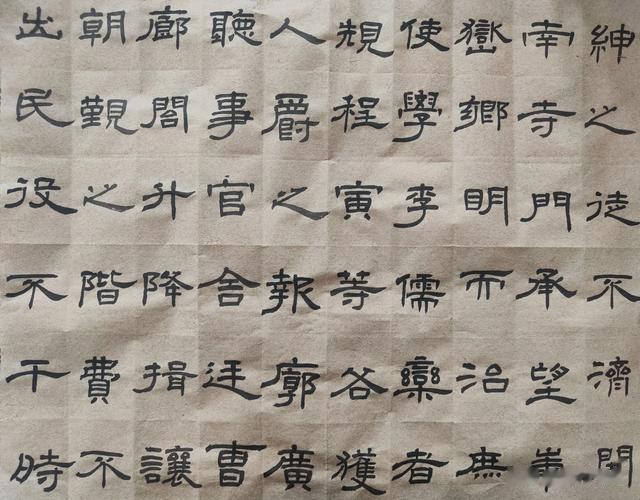 紳之徒不濟開
南寺門承望華
嶽鄉明而治庶
使學李儒欒者
規程寅等各獲
人爵之報廓廣
聽事官舍廷曹
廊閣升降揖讓
朝覲之階費不
出民役不干時